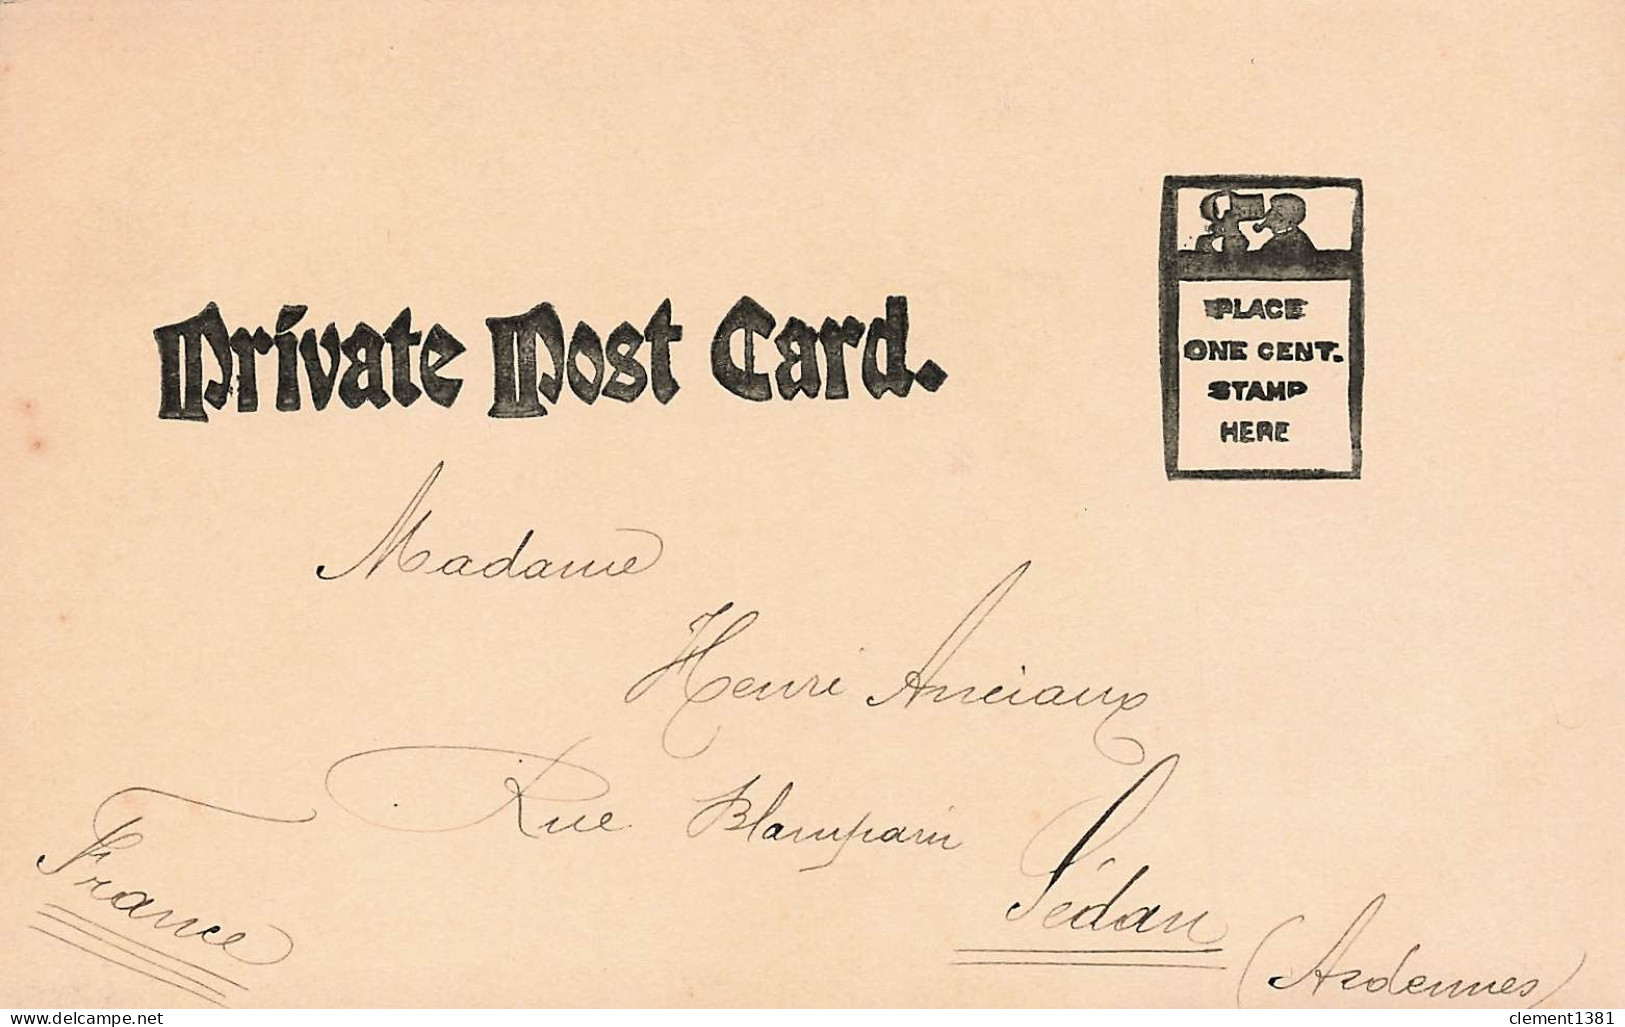 Private Post Card.
PLACE
ONE CENT.
STAMP
HERE
Madame
Henri Anciaux
Rue Blampain
Sédan
(Ardennes)
France
delcampe.net
clement1381